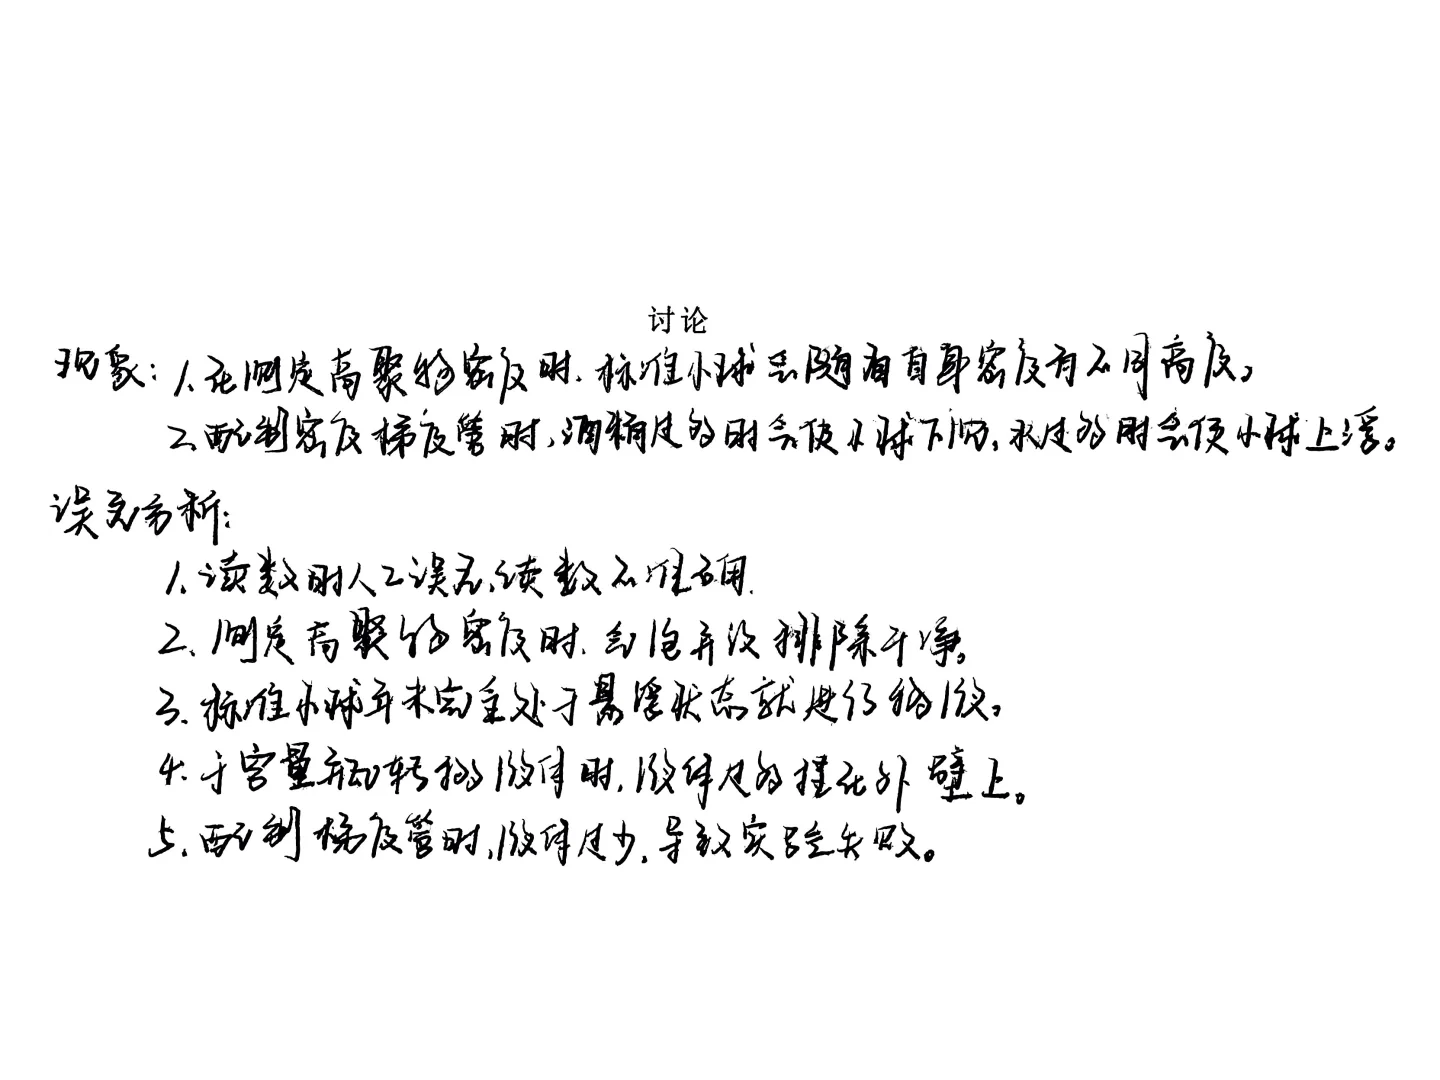 讨论
现象：1.在测定高聚物密度时，标准小球会随着自身密度有不同高度。
2.配制密度梯度管时，酒精过多时会使小球下沉，水过多时会使小球上浮。
误差分析：
1.读数时人工误差，读数不准确.
2.测定高聚物密度时，气泡并没排除干净。
3.标准小球并未完全处于悬浮状态就进行移液。
4.于容量瓶转移液体时，液体过多挂在外壁上。
5.配制梯度管时，液体过少，导致实验失败。